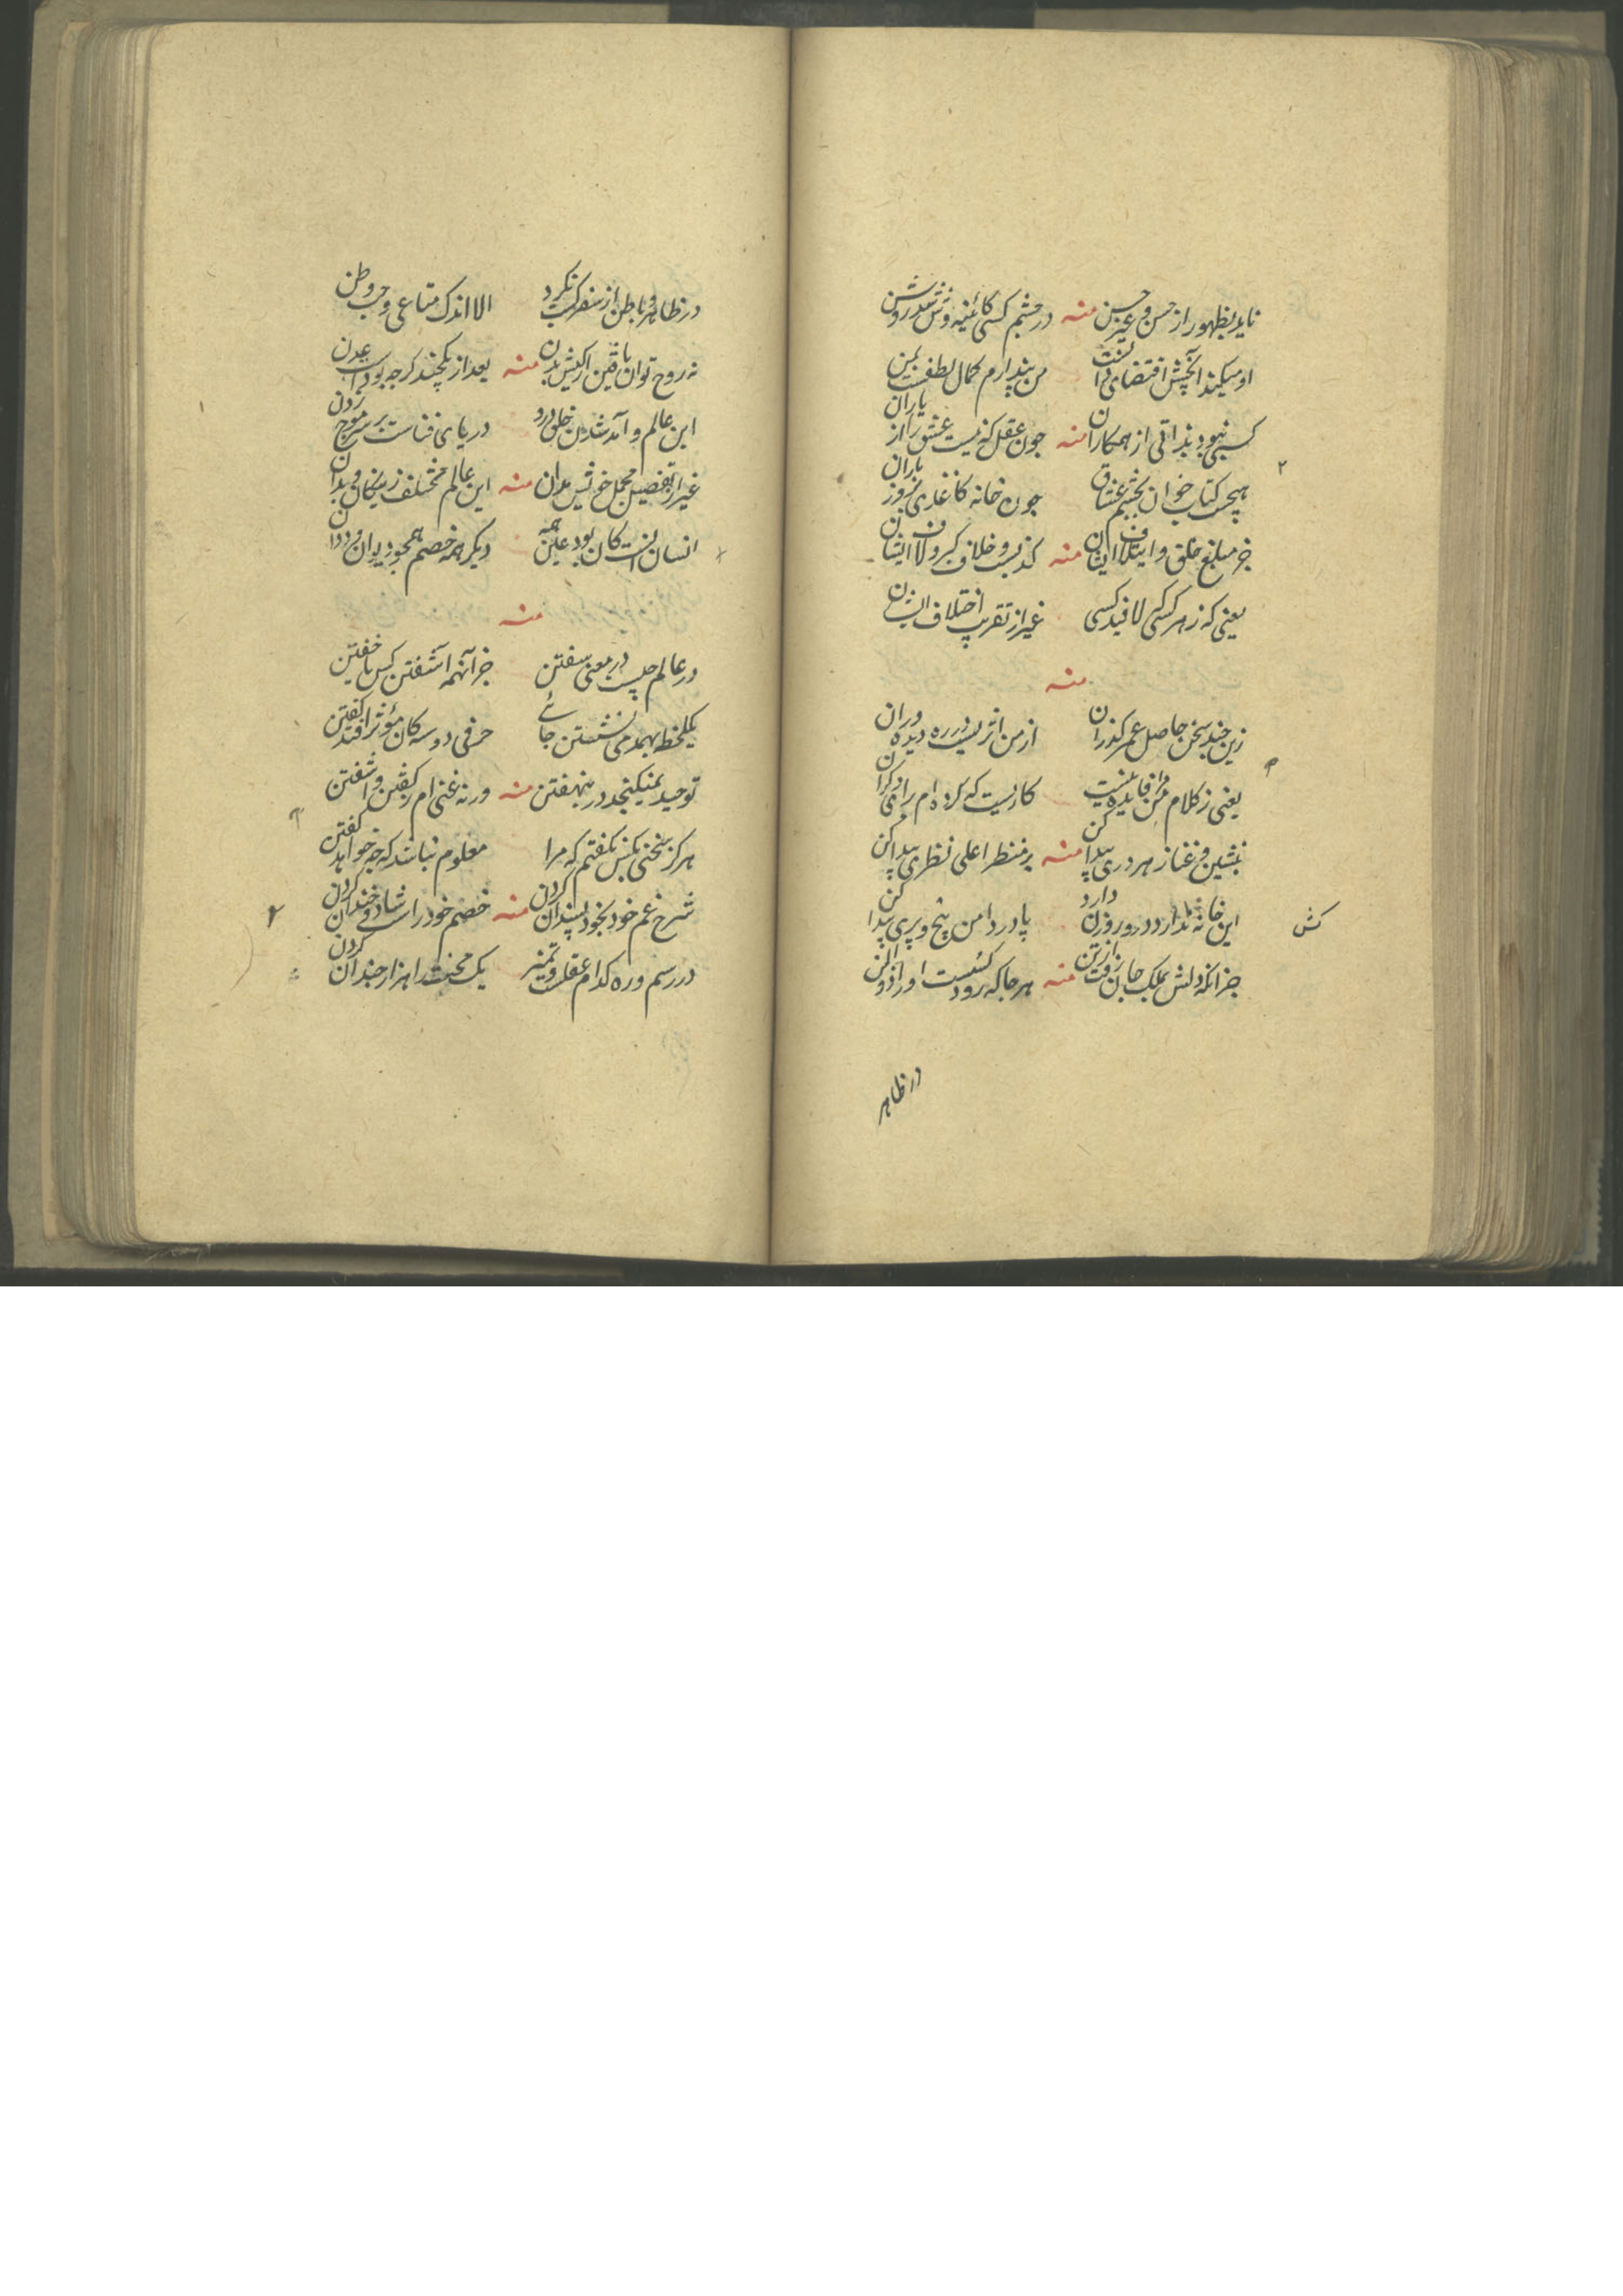 ناید بظهور از حسن و غیر حسن منه در چشم کسی کائینه وش شد روشن
او میکند آنچش اقتضای ذاتست من پندارم کمال لطفست بمن
کسبی نبود بتر اقی از همکاران منه چون عقل که نیست عشق را از یاران
هیچست کتاب خوان بچشم عشاق چون خانه کاغذی بروز باران
جز مبلغ خلق و ایتلاف ایشان منه کذبست و خلاف کبر و لاف ایشان
یعنی که ز هر کسی کسی لافد غیر از تقریب اختلاف ایشان
منه
زین چند سخن حاصل عمر گذران از من اثریست در ره دیده وران
یعنی ز کلام من فایده نیست کاریست که کرده‌ام برای دگران
بنشین و غنا ز هر دری پیدا کن منه بر منظر اعلی نظری پیدا کن
این خانه ندارد در و روزن دارد پا در دامن پیچ و پری پیدا کن
جز انکه دلش بملک جان رفت ز تن منه هر جا که رود کسیست او را ذو المن
کش
در ظاهر
در ظاهر و باطن از سفر کسب نکرد الا اندک متاعی و حب وطن
نه روح توان یافتن الایش بدن منه بعد از یکچند گرچه بود آب عدن
این عالم و آمد شدن خلق درو دریای فناست بر سر موج زدن
غیر از تفصیل مجمل خویش مدان منه این عالم مختلف ز نیکان و بدان
انسان انست کان بود عین همه دیگر همه خصم همچو دیوان و ددان
منه
در عالم چیست در معنی سفتن جز آنهمه آشفتن کس یا خفتن
یکلحظه بهمدمی نشستن جائی حرفی دو سه کان مؤثر افتد گفتن
توحید نمیگنجد در بنهفتن منه ورنه غنی‌ام ز گفتن و اشفتن
هرگز سخنی بکس نگفتم که مرا معلوم نباشد که چه خواهد گفتن
شرح غم خود بخود پسندان کردن منه خصم خود راست شاد و خندان کردن
در رسم و ره کدام عقلست و تمیز یک محنت را هزار چندان کردن